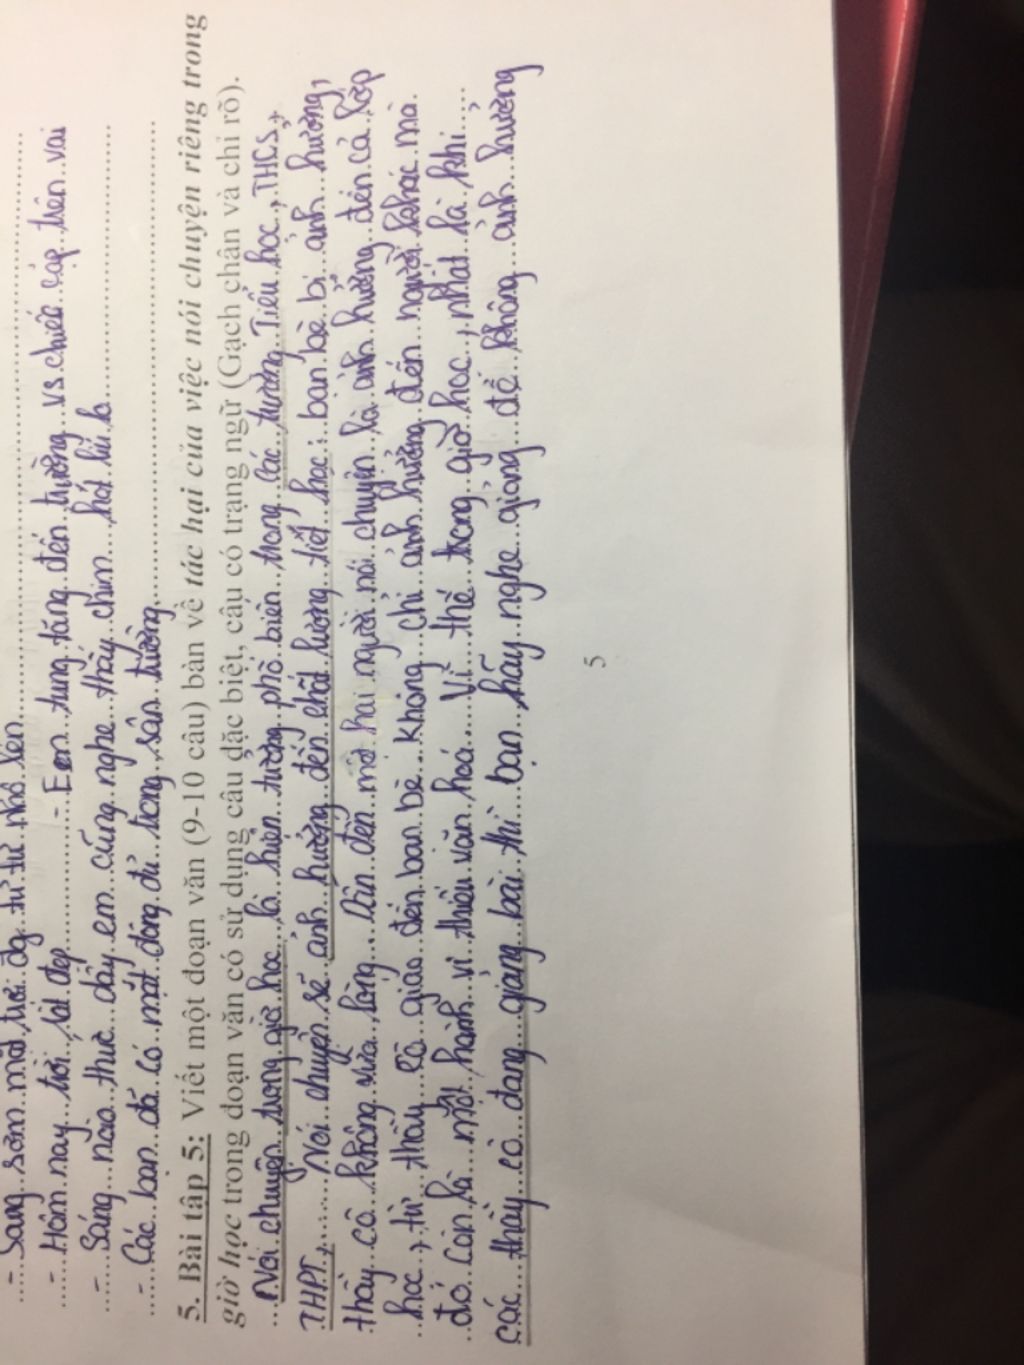 - Sáng sớm, mặt trời đg từ từ nhô lên
- Hôm nay, trời lất đẹp - Em tung tăng đến trường vs chiếc cặp trên vai
- Sáng nào thức dậy em cũng nghe thấy chim hót líu lo
- Các bạn đã có mặt đông đủ trong sân trường
5. Bài tập 5: Viết một đoạn văn (9-10 câu) bàn về tác hại của việc nói chuyện riêng trong
giờ học trong đoạn văn có sử dụng câu đặc biệt, câu có trạng ngữ (Gạch chân và chỉ rõ).
Nói chuyện trong giờ học là hiện tượng phổ biến trong các trường Tiểu học, THCS,
THPT, Nói chuyện sẽ ảnh hưởng đến chất lượng tiết học: bạn bè bị ảnh hưởng,
thầy cô không vừa lòng. Dẫn đến một hai người nói chuyện là ảnh hưởng đến cả lớp
học, từ thầy cô giáo đến bạn bè. Không chỉ ảnh hưởng đến người khác mà
đó còn là một hành vi thiếu văn hoá. Vì thế trong giờ học, nhất là khi
các thầy cô đang giảng bài thì bạn hãy nghe giảng để không ảnh hưởng
5